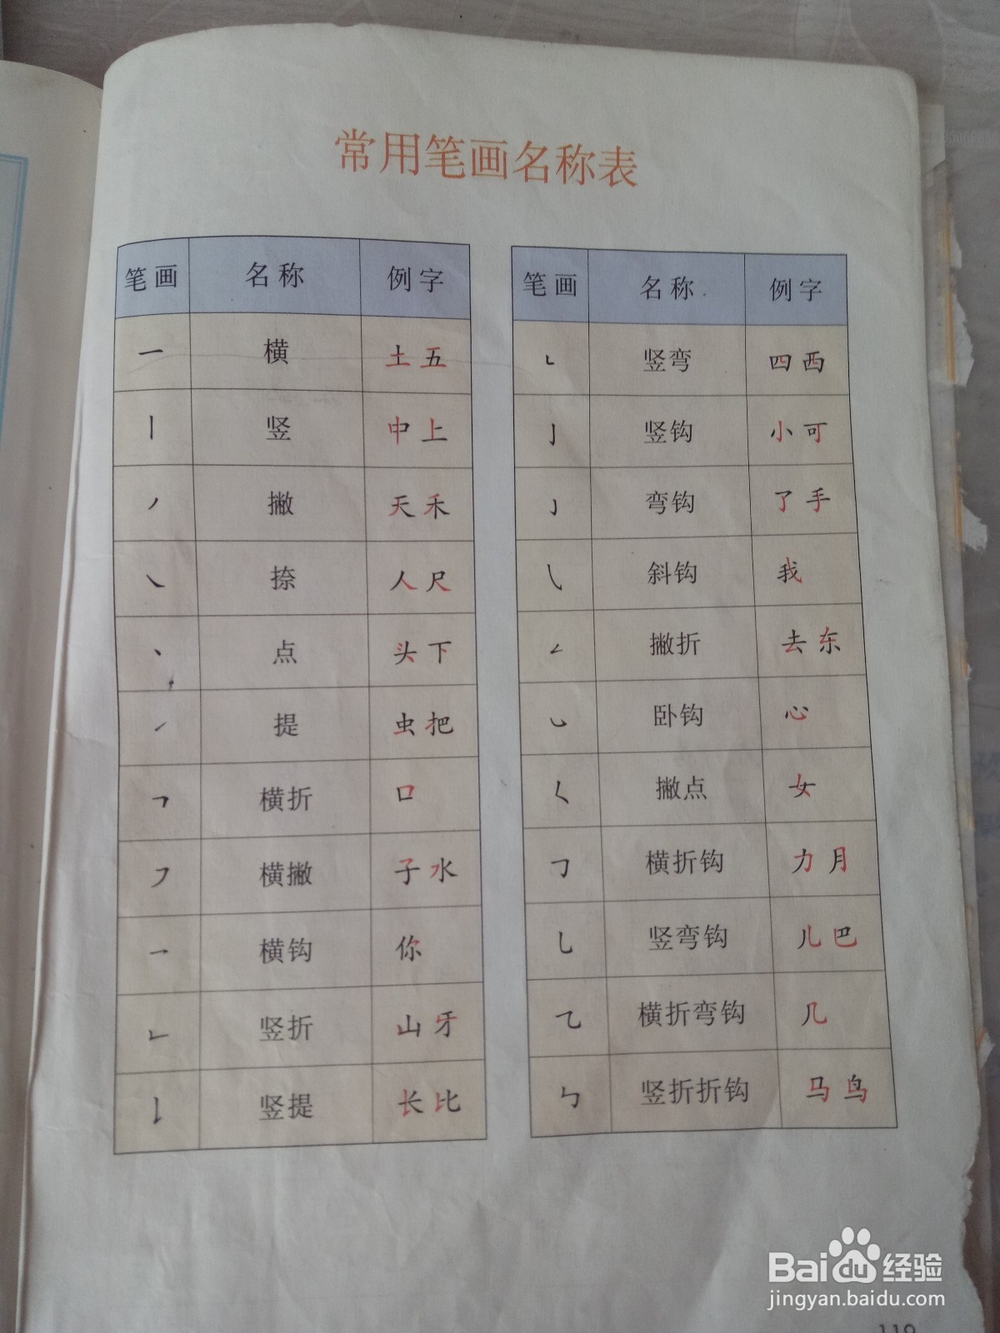 常用笔画名称表
笔画 名称 例字
㇐ 横 土五
㇑ 竖 中上
㇒ 撇 天禾
㇏ 捺 人尺
㇔ 点 头下
㇀ 提 虫把
㇕ 横折 口
㇇ 横撇 子水
㇖ 横钩 你
㇗ 竖折 山牙
㇙ 竖提 长比
笔画 名称 例字
㇄ 竖弯 四西
㇚ 竖钩 小可
㇁ 弯钩 了手
㇂ 斜钩 我
㇜ 撇折 去东
㇃ 卧钩 心
㇛ 撇点 女
㇆ 横折钩 力月
㇟ 竖弯钩 儿巴
㇈ 横折弯钩 几
㇉ 竖折折钩 马鸟
Baidu经验
jingyan.baidu.com
119